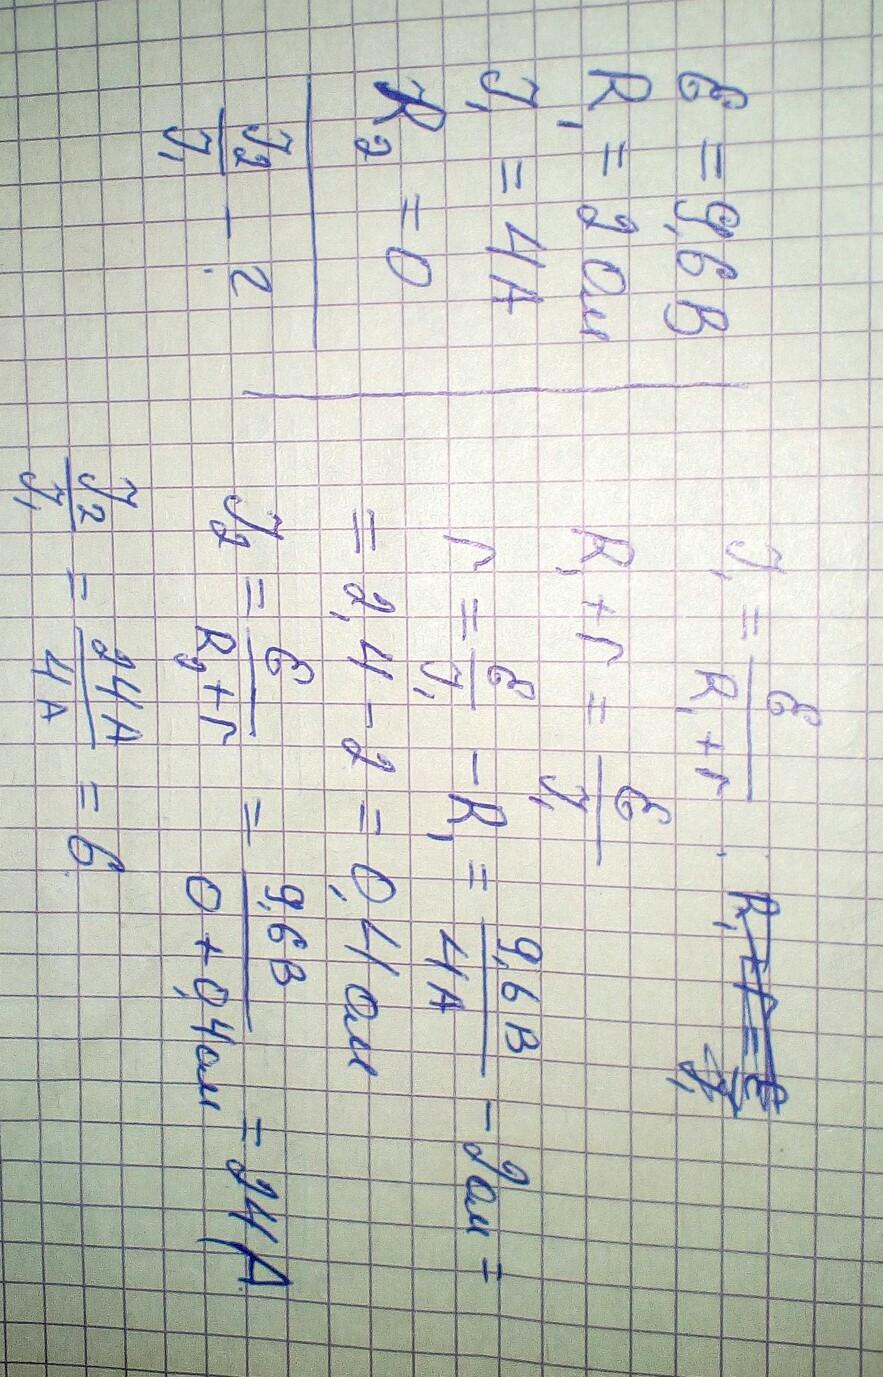 ℰ = 9,6 В
R₁ = 2 Ом
J₁ = 4 А
R₂ = 0
J₂/J₁ - ?
J₁ = ℰ/(R₁ + r)
R₁ + r = ℰ/J₁
R₁ + r = ℰ/J₁
r = ℰ/J₁ - R₁ = 9,6 В/4 А - 2 Ом =
= 2,4 - 2 = 0,4 Ом
J₂ = ℰ/(R₂ + r) = 9,6 В/(0 + 0,4 Ом) = 24 А
J₂/J₁ = 24 А/4 А = 6